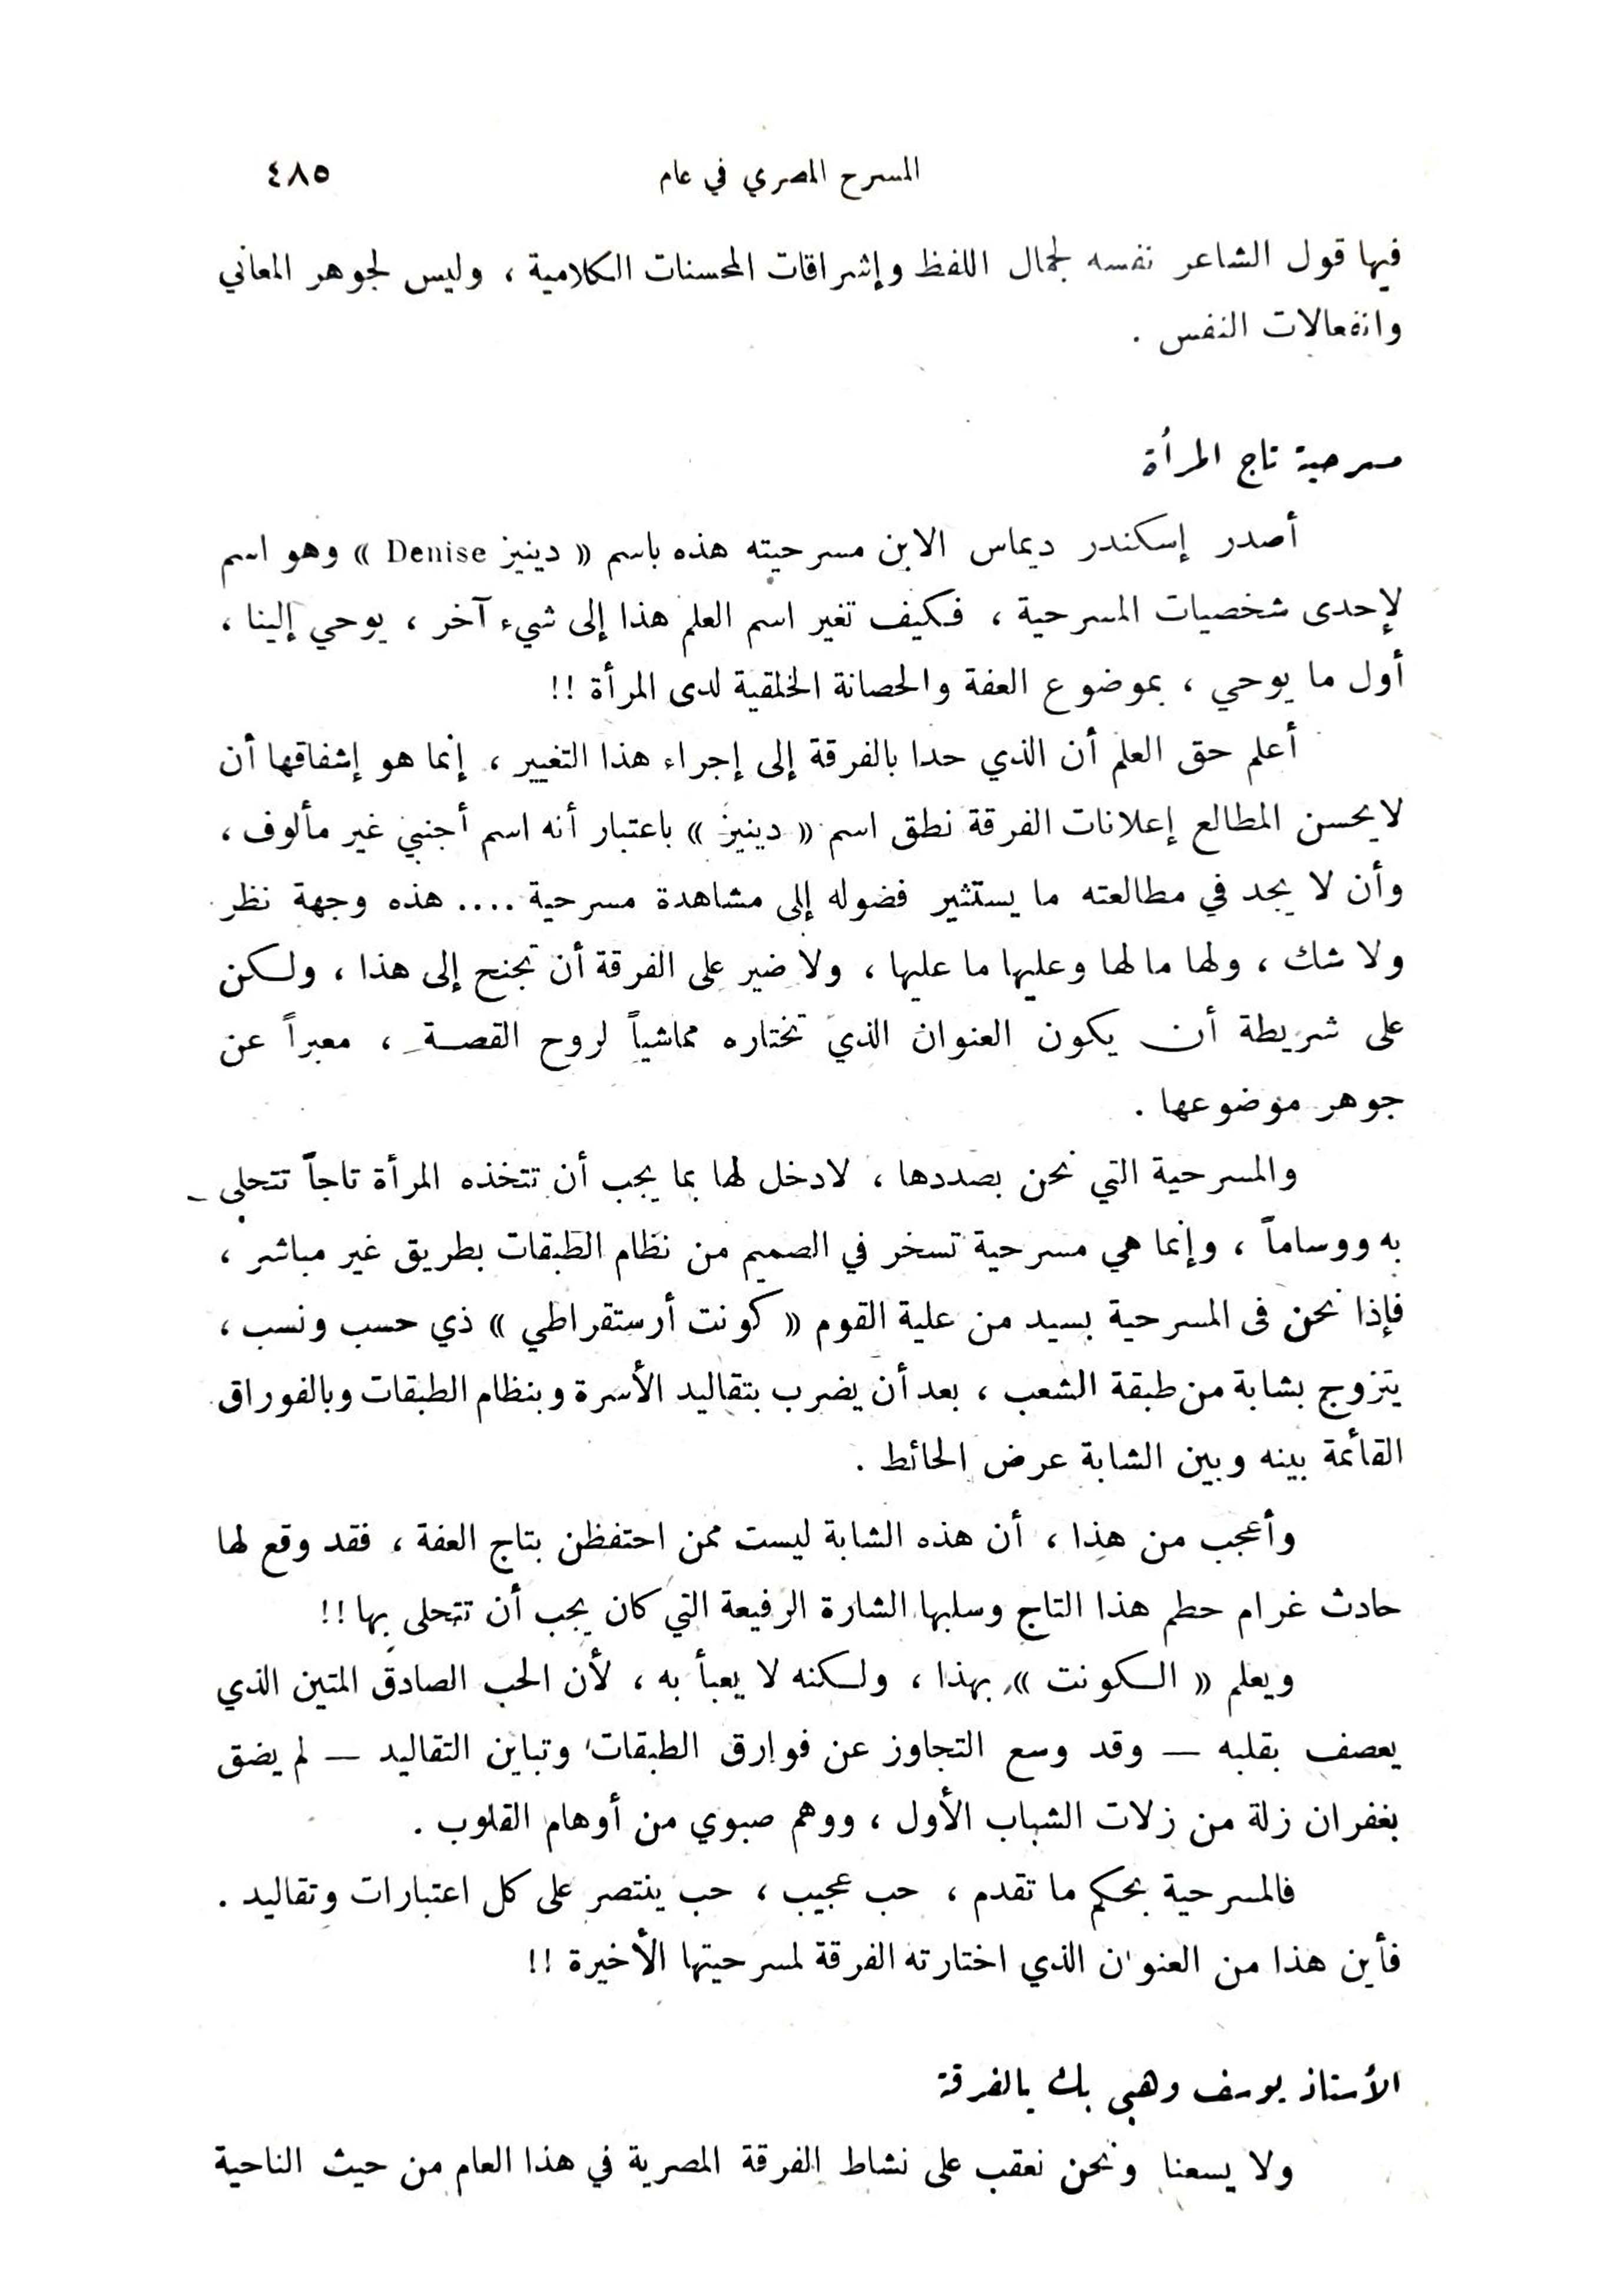 المسرح المصري في عام ٤٨٥
فيها قول الشاعر نفسه لجمال اللفظ وإشراقات المحسنات الكلامية ، وليس لجوهر المعاني
وانفعالات النفس .
مسرحية تاج المرأة
أصدر إسكندر ديماس الابن مسرحيته هذه باسم « دينيز Denise » وهو اسم
لإحدى شخصيات المسرحية ، فكيف تغير اسم العلم هذا إلى شيء آخر ، يوحي إلينا ،
أول ما يوحي ، بموضوع العفة والحصانة الخلقية لدى المرأة !!
أعلم حق العلم أن الذي حدا بالفرقة إلى إجراء هذا التغيير ، إنما هو إشفاقها أن
لا يحسن المطالع إعلانات الفرقة نطق اسم « دينيز » باعتبار أنه اسم أجنبي غير مألوف ،
وأن لا يجد في مطالعته ما يستثير فضوله إلى مشاهدة مسرحية .... هذه وجهة نظر
ولا شك ، ولها ما لها وعليها ما عليها ، ولا ضير على الفرقة أن تجنح إلى هذا ، ولكن
على شريطة أن يكون العنوان الذي تختاره مماشياً لروح القصة ، معبراً عن
جوهر موضوعها .
والمسرحية التي نحن بصددها ، لا دخل لها بما يجب أن تتخذه المرأة تاجاً تتحلى
به ووساماً ، وإنما هي مسرحية تسخر في الصميم من نظام الطبقات بطريق غير مباشر ،
فإذا نحن فى المسرحية بسيد من علية القوم « كونت أرستقراطي » ذي حسب ونسب ،
يتزوج بشابة من طبقة الشعب ، بعد أن يضرب بتقاليد الأسرة وبنظام الطبقات وبالفوراق
القائمة بينه وبين الشابة عرض الحائط .
وأعجب من هذا ، أن هذه الشابة ليست ممن احتفظن بتاج العفة ، فقد وقع لها
حادث غرام حطم هذا التاج وسلبها الشارة الرفيعة التي كان يجب أن تتحلى بها !!
ويعلم « الكونت » بهذا ، ولكنه لا يعبأ به ، لأن الحب الصادق المتين الذي
يعصف بقلبه — وقد وسع التجاوز عن فوارق الطبقات وتباين التقاليد — لم يضق
بغفران زلة من زلات الشباب الأول ، ووهم صبوي من أوهام القلوب .
فالمسرحية بحكم ما تقدم ، حب عجيب ، حب ينتصر على كل اعتبارات وتقاليد .
فأين هذا من العنوان الذي اختارته الفرقة لمسرحيتها الأخيرة !!
الأستاذ يوسف وهبى بك بالفرقة
ولا يسعنا ونحن نعقب على نشاط الفرقة المصرية في هذا العام من حيث الناحية